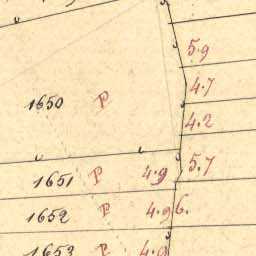 5.9
4.7
1650 P
4.2
5.7
1651 P 4.9
1652 P 4.96.
1653 P 4.9